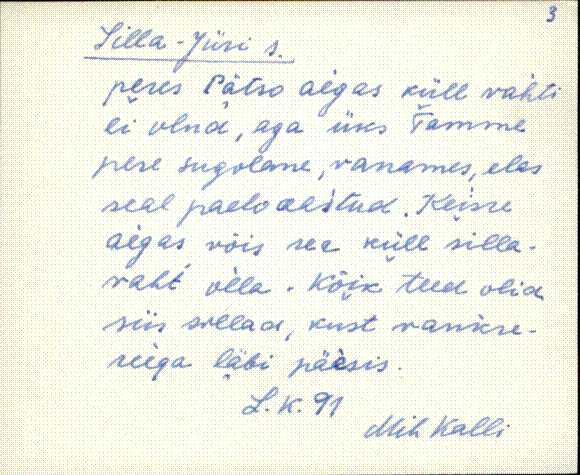 3
Silla-Jüri s.
peres Pätso aègas küll vahti
ei olnd, aga üks Tamme
pere sugolane, vanames, elas
seal paelo aastud. Keisre
aègas võis see küll silla-
vaht vèlla. Kõik teed olid
siis sellad, kust vankre-
reèga läbi pääsis.
L. K. 91
Mih Kalli